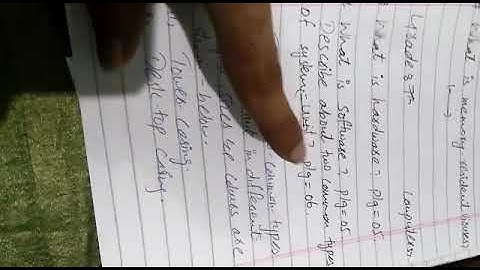 What is memory resident viruses?
Grade 8th Computers:-
What is hardware? p/g=05.
What is Software? p/g=05
Describe about two common types
of system unit? p/g=06.
common types
in different
are
below.
Tower casing.
Desk-top casing.